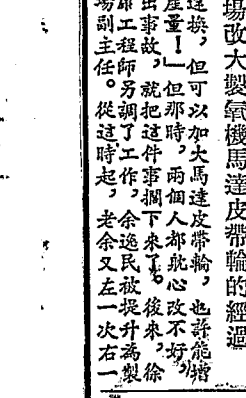 場改大製氧機馬達皮帶輪的經過
換，但可以加大馬達皮帶輪，也許能增
產量！」但那時，兩個人都躭心改不好，
出事故，就把这件事擱下來了。後來，徐
工程師另調了工作，余逸民被提升為製
場副主任。從這時起，老余又左一次右一